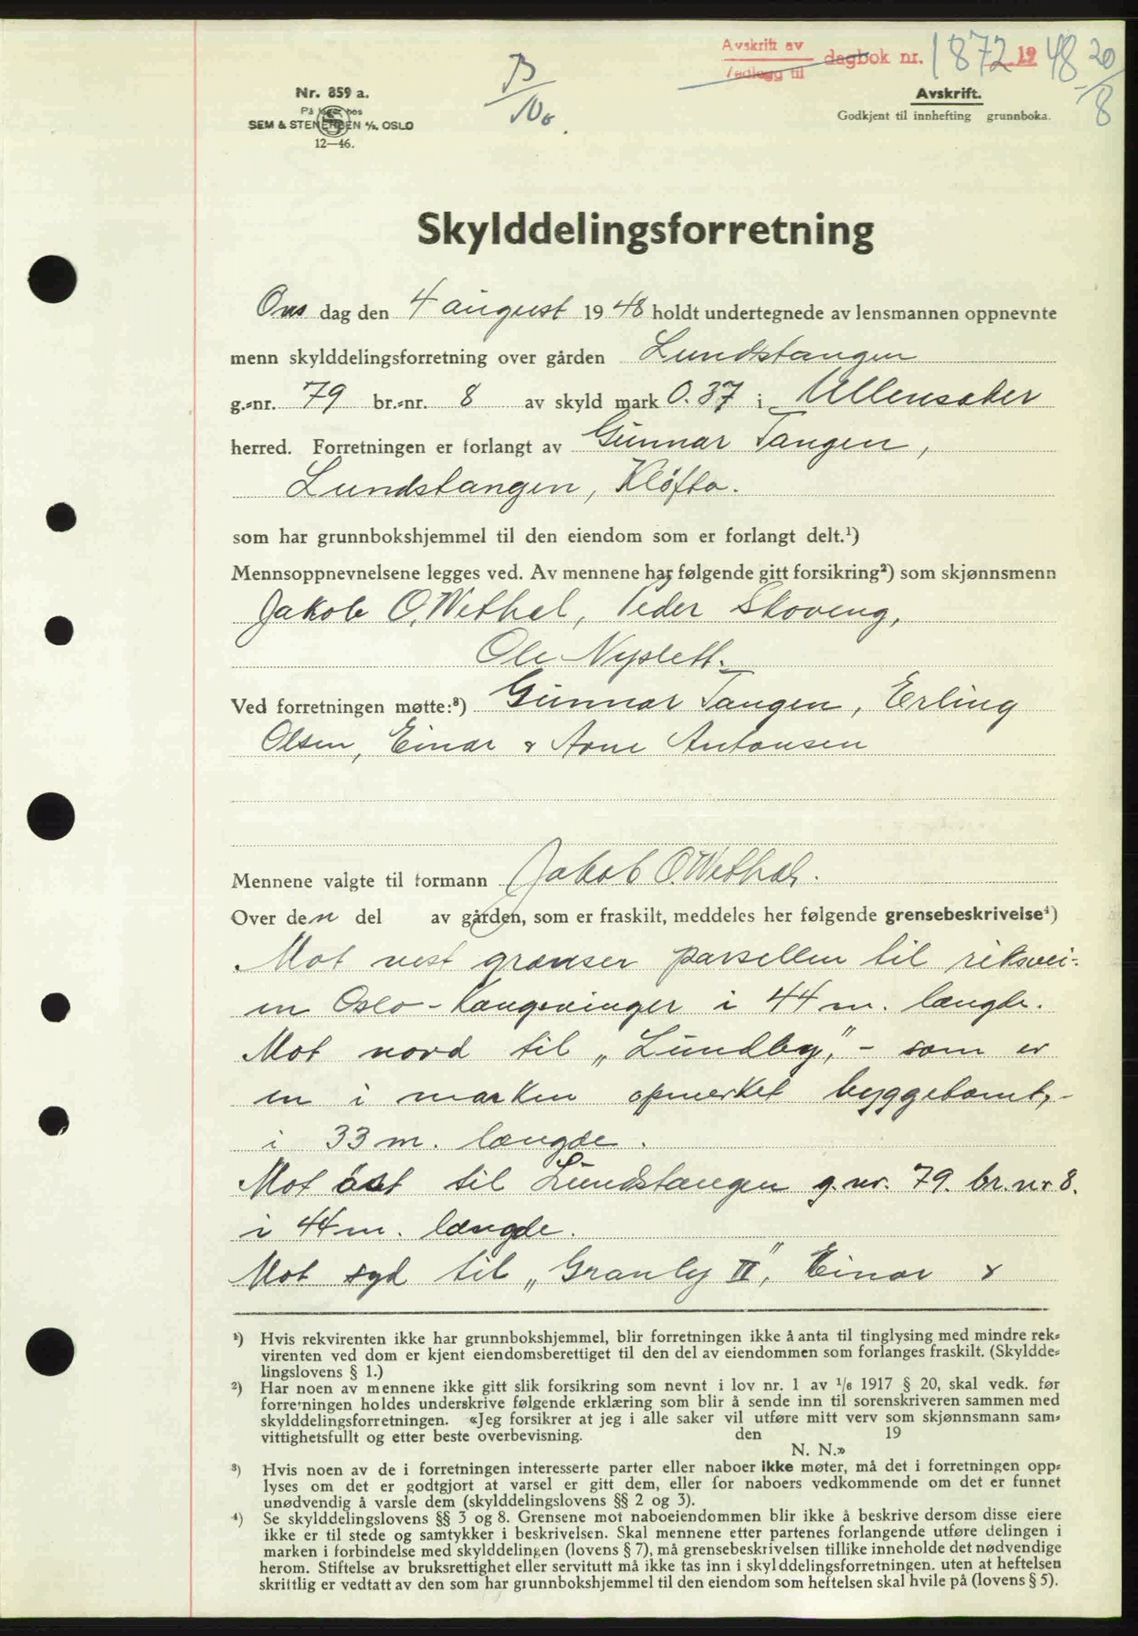 Avskrift av
Vedlegg til
dagbok nr. 1872 19 48 20/8
B/100.
Nr. 859 a.
På lager hos
SEM & STENERSEN A/S. OSLO
12—46.
Avskrift.
Godkjent til innhefting grunnboka.
Skylddelingsforretning
Ons dag den 4 august 19 48 holdt undertegnede av lensmannen oppnevnte
menn skylddelingsforretning over gården Lundstangen
g.-nr. 79 br.-nr. 8 av skyld mark 0.37 i Ullensaker
herred. Forretningen er forlangt av Gunnar Tangen,
Lundstangen, Kløfta.
som har grunnbokshjemmel til den eiendom som er forlangt delt.¹)
Mennsoppnevnelsene legges ved. Av mennene har følgende gitt forsikring²) som skjønnsmenn
Jakob O. Wethal, Peder Skoveng,
Ole Nyslett.
Ved forretningen møtte:³) Gunnar Tangen, Erling
Olsen, Einar & Arne Antonsen
Mennene valgte til formann Jakob O. Wethal.
Over den del av gården, som er fraskilt, meddeles her følgende grensebeskrivelse⁴)
Mot vest grenser parsellen til riksvei-
en Oslo - Kongsvinger i 44 m. længde.
Mot nord til „Lundby," - som er
en i marken opmerket byggetomt, -
i 33 m. længde.
Mot øst til Lundstangen g.nr. 79. br.nr 8.
i 44 m. længde.
Mot syd til „Granly II", Einar &
¹) Hvis rekvirenten ikke har grunnbokshjemmel, blir forretningen ikke å anta til tinglysing med mindre rek-
virenten ved dom er kjent eiendomsberettiget til den del av eiendommen som forlanges fraskilt. (Skyldde-
lingslovens § 1.)
²) Har noen av mennene ikke gitt slik forsikring som nevnt i lov nr. 1 av ¹/₆ 1917 § 20, skal vedk. før
forretningen holdes underskrive følgende erklæring som blir å sende inn til sorenskriveren sammen med
skylddelingsforretningen. «Jeg forsikrer at jeg i alle saker vil utføre mitt verv som skjønnsmann sam-
vittighetsfullt og etter beste overbevisning. den 19
N. N.»
³) Hvis noen av de i forretningen interesserte parter eller naboer ikke møter, må det i forretningen opp-
lyses om det er godtgjort at varsel er gitt dem, eller for naboers vedkommende om det er funnet
unødvendig å varsle dem (skylddelingslovens §§ 2 og 3).
⁴) Se skylddelingslovens §§ 3 og 8. Grensene mot naboeiendommen blir ikke å beskrive dersom disse eiere
ikke er til stede og samtykker i beskrivelsen. Skal mennene etter partenes forlangende utføre delingen i
marken i forbindelse med skylddelingen (lovens § 7), må grensebeskrivelsen tillike inneholde det nødvendige
herom. Stiftelse av bruksrettighet eller servitutt må ikke tas inn i skylddelingsforretningen. uten at heftelsen
skriftlig er vedtatt av den som har grunnbokshjemmel til den eiendom som heftelsen skal hvile på (lovens § 5).